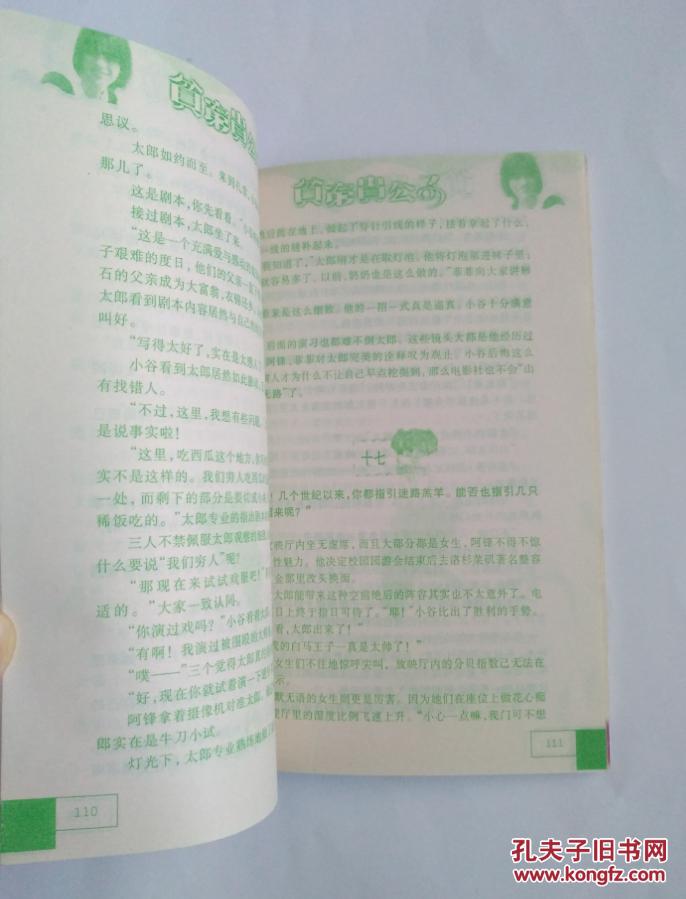 贫穷贵公
思议。
太郎如约而至。来到礼堂，
那儿了。
这是剧本，你先看看。”小
接过剧本，太郎坐了
“这是一个充满爱与感动的
子艰难的度日，他们的父亲一
石的父亲成为大富翁，衣锦还乡
太郎看到剧本内容居然与自己
叫好。
“写得太好了，实在是太感人
小谷看到太郎居然如此
有找错人。
“不过，这里，我想有些问题，
是说事实啦！
“这里，吃西瓜这个地方，
实不是这样的。我们穷人吃西瓜
一处，而剩下的部分是要切成小
稀饭吃的。”太郎专业的指出
三人不禁佩服太郎观察的
什么要说“我们穷人”呢？
“那现在来试试戏服吧！”
适的。”大家一致认同。
“你演过戏吗？”小谷看着太
“有啊！我演过被围殴的
“噗——”三个觉得太郎真
“好，现在你就试着演一下
阿锋拿着摄像机对准太郎，
郎实在是牛刀小试。
灯光下，太郎专业熟练地
110
贫穷贵公子
后跪在地上，做起了穿针引线的样子，接着拿起了什么，
一线的缝补起来。
我知道了，”太郎刚才是在取灯泡。他将灯泡塞进袜子里；
就容易多了。以前，奶奶也是这么做的。”菲菲向大家讲解
来是这么细致。他的一招一式真是逼真。小谷十分满意
后面的演习也都难不倒太郎。这些镜头太郎是他经历过
阿锋、菲菲对太郎完美的诠释叹为观止。小谷后悔这么
人才为什么不让自己早点挖掘到，那么电影社也不会“山
无路”了。
十七
！几个世纪以来，你都指引迷路羔羊。能否也指引几只
来呢？”
映厅内坐无虚席，而且大部分都是女生，阿锋不得不惊
性魅力。他决定校园园游会结束后去洛杉矶著名整容
金部里改头换面。
太郎能带来这种空前绝后的阵容其实也不太意外了。电
日上终于指日可待了。“耶！”小谷比出了胜利的手势。
看，太郎出来了！”
我的白马王子—真是太帅了！”
女生们不住地惊呼尖叫，放映厅内的分贝指数已无法在
示。
默无语的女生则更是厉害。因为她们在座位上做花心痴
厅里的湿度比例飞速上升。“小心一点嘛，我们可不想
111
孔夫子旧书网
www.kongfz.com